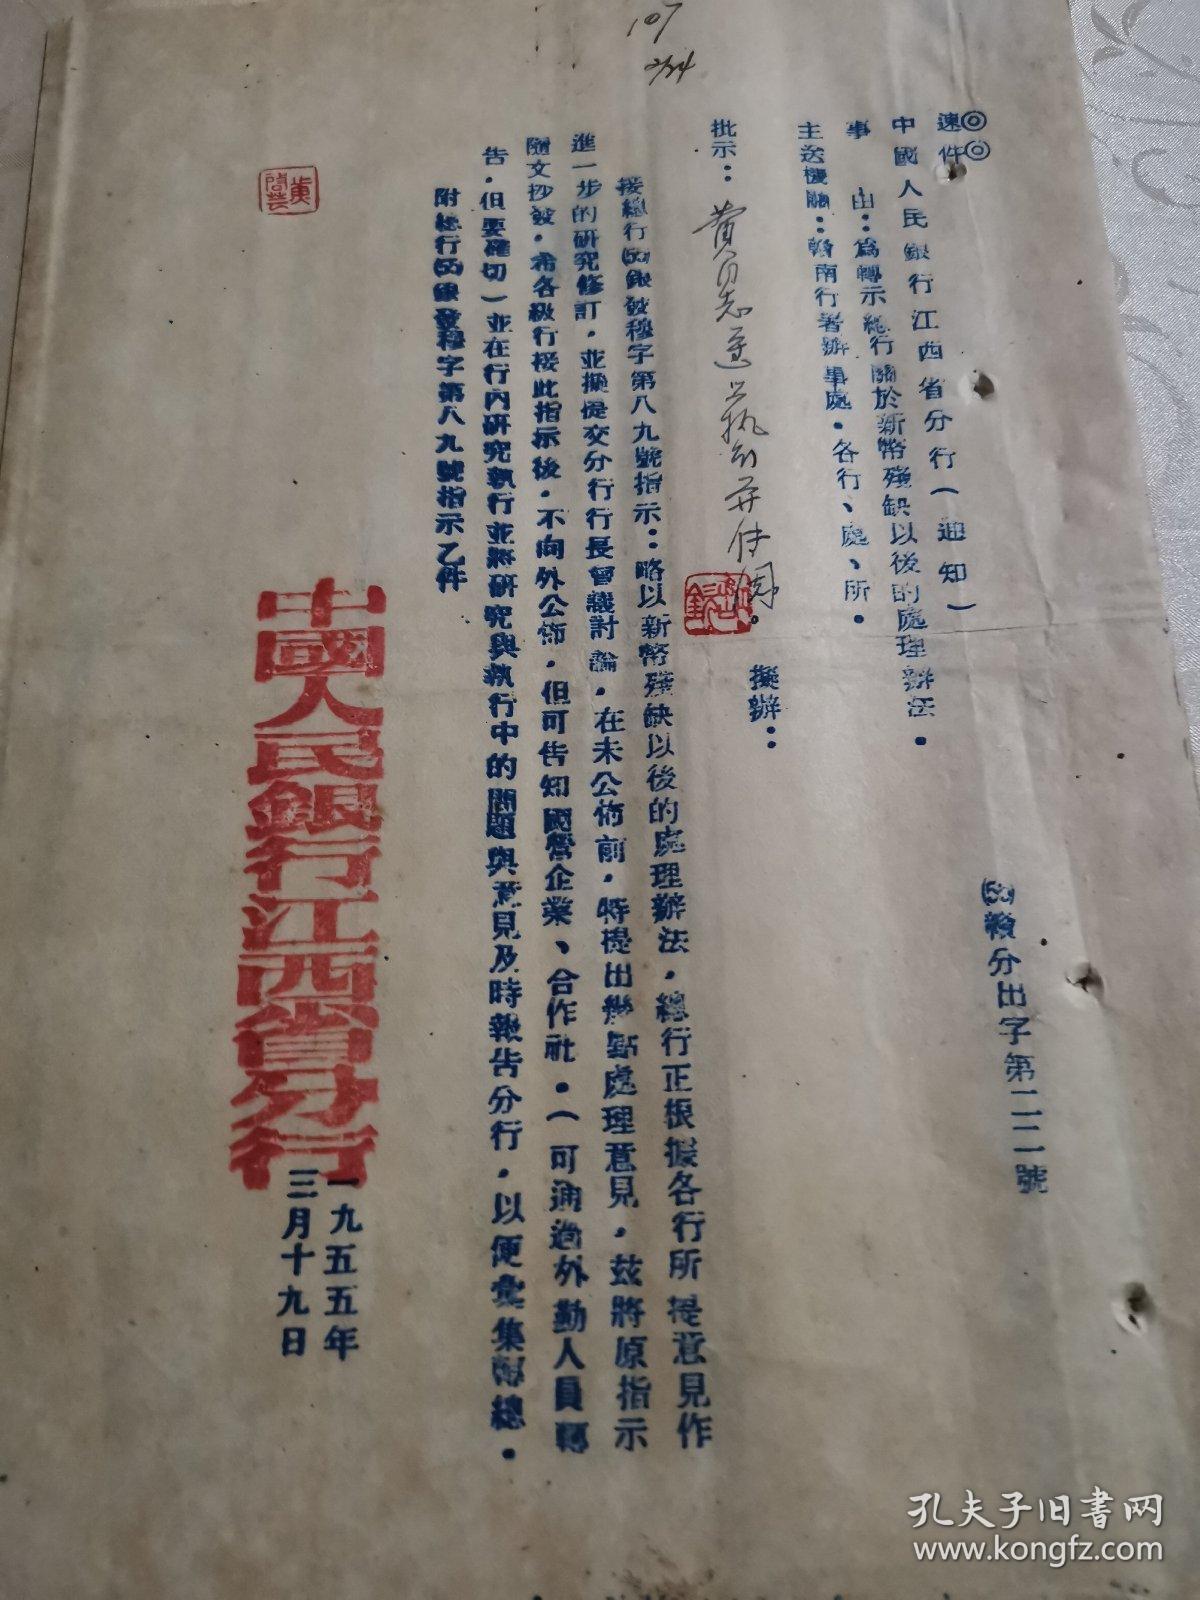 107
2/24
◎◎
速件
中國人民銀行江西省分行(通知)
(55)贛分出字第二二一號
事　由：為轉示總行關於新幣殘缺以後的處理辦法．
主送機關：贛南行署辦事處．各行、處、所．
批示：
擬辦：
接總行(55)銀發穆字第八九號指示：略以新幣殘缺以後的處理辦法，總行正根據各行所提意見作
進一步的研究修訂，並擬提交分行行長會議討論，在未公佈前，特提出幾點處理意見，茲將原指示
隨文抄發，希各級行接此指示後，不向外公佈，但可告知國營企業、合作社．(可通過外勤人員轉
告，但要確切)並在行內研究執行並將研究與執行中的問題與意見及時報告分行，以便彙集轉總．
附總行(55)銀發穆字第八九號指示乙件
中國人民銀行江西省分行
一九五五年
三月十九日
孔夫子旧书网
www.kongfz.com